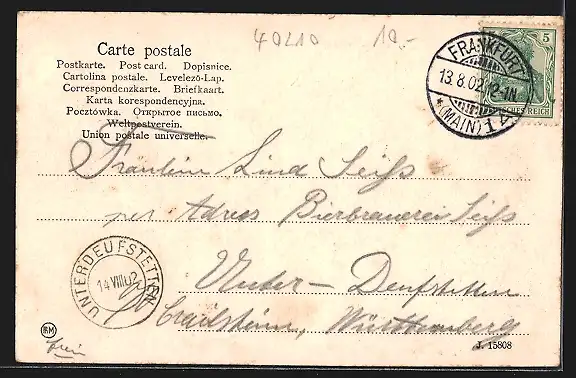 40210 10.-
Carte postale
Postkarte. Post card. Dopisnice.
Cartolina postale. Levelező-Lap.
Correspondenzkarte. Briefkaart.
Karta korespondencyjna.
Pocztówka. Открытое письмо.
Weltpostverein.
Union postale universelle.
FRANKFURT
13.8.02. 2-1N.
* (MAIN) 1 *
5
DEUTSCHES REICH
Fräulein Lina Seiß
per Adres Bierbrauerei Seiß
Unter-Deufstetten
Crailsheim, Württemberg
UNTERDEUFSTETTEN
14 VIII 02
J. 15808